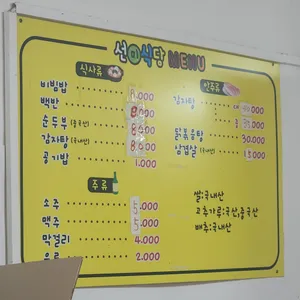 선미식당 MENU
식사류
비빔밥 8.000
백반 8.000
순두부(중국산) 8.000
감자탕(국내산) 8.000
공기밥 1.000
안주류
감자탕 大 40.000
中 35.000
닭볶음탕 30.000
삼겹살(국내산) 15.000
주류
소주 5.000
맥주 5.000
막걸리 4.000
음료 2.000
쌀:국내산
고추가루:국산,중국산
배추:국내산